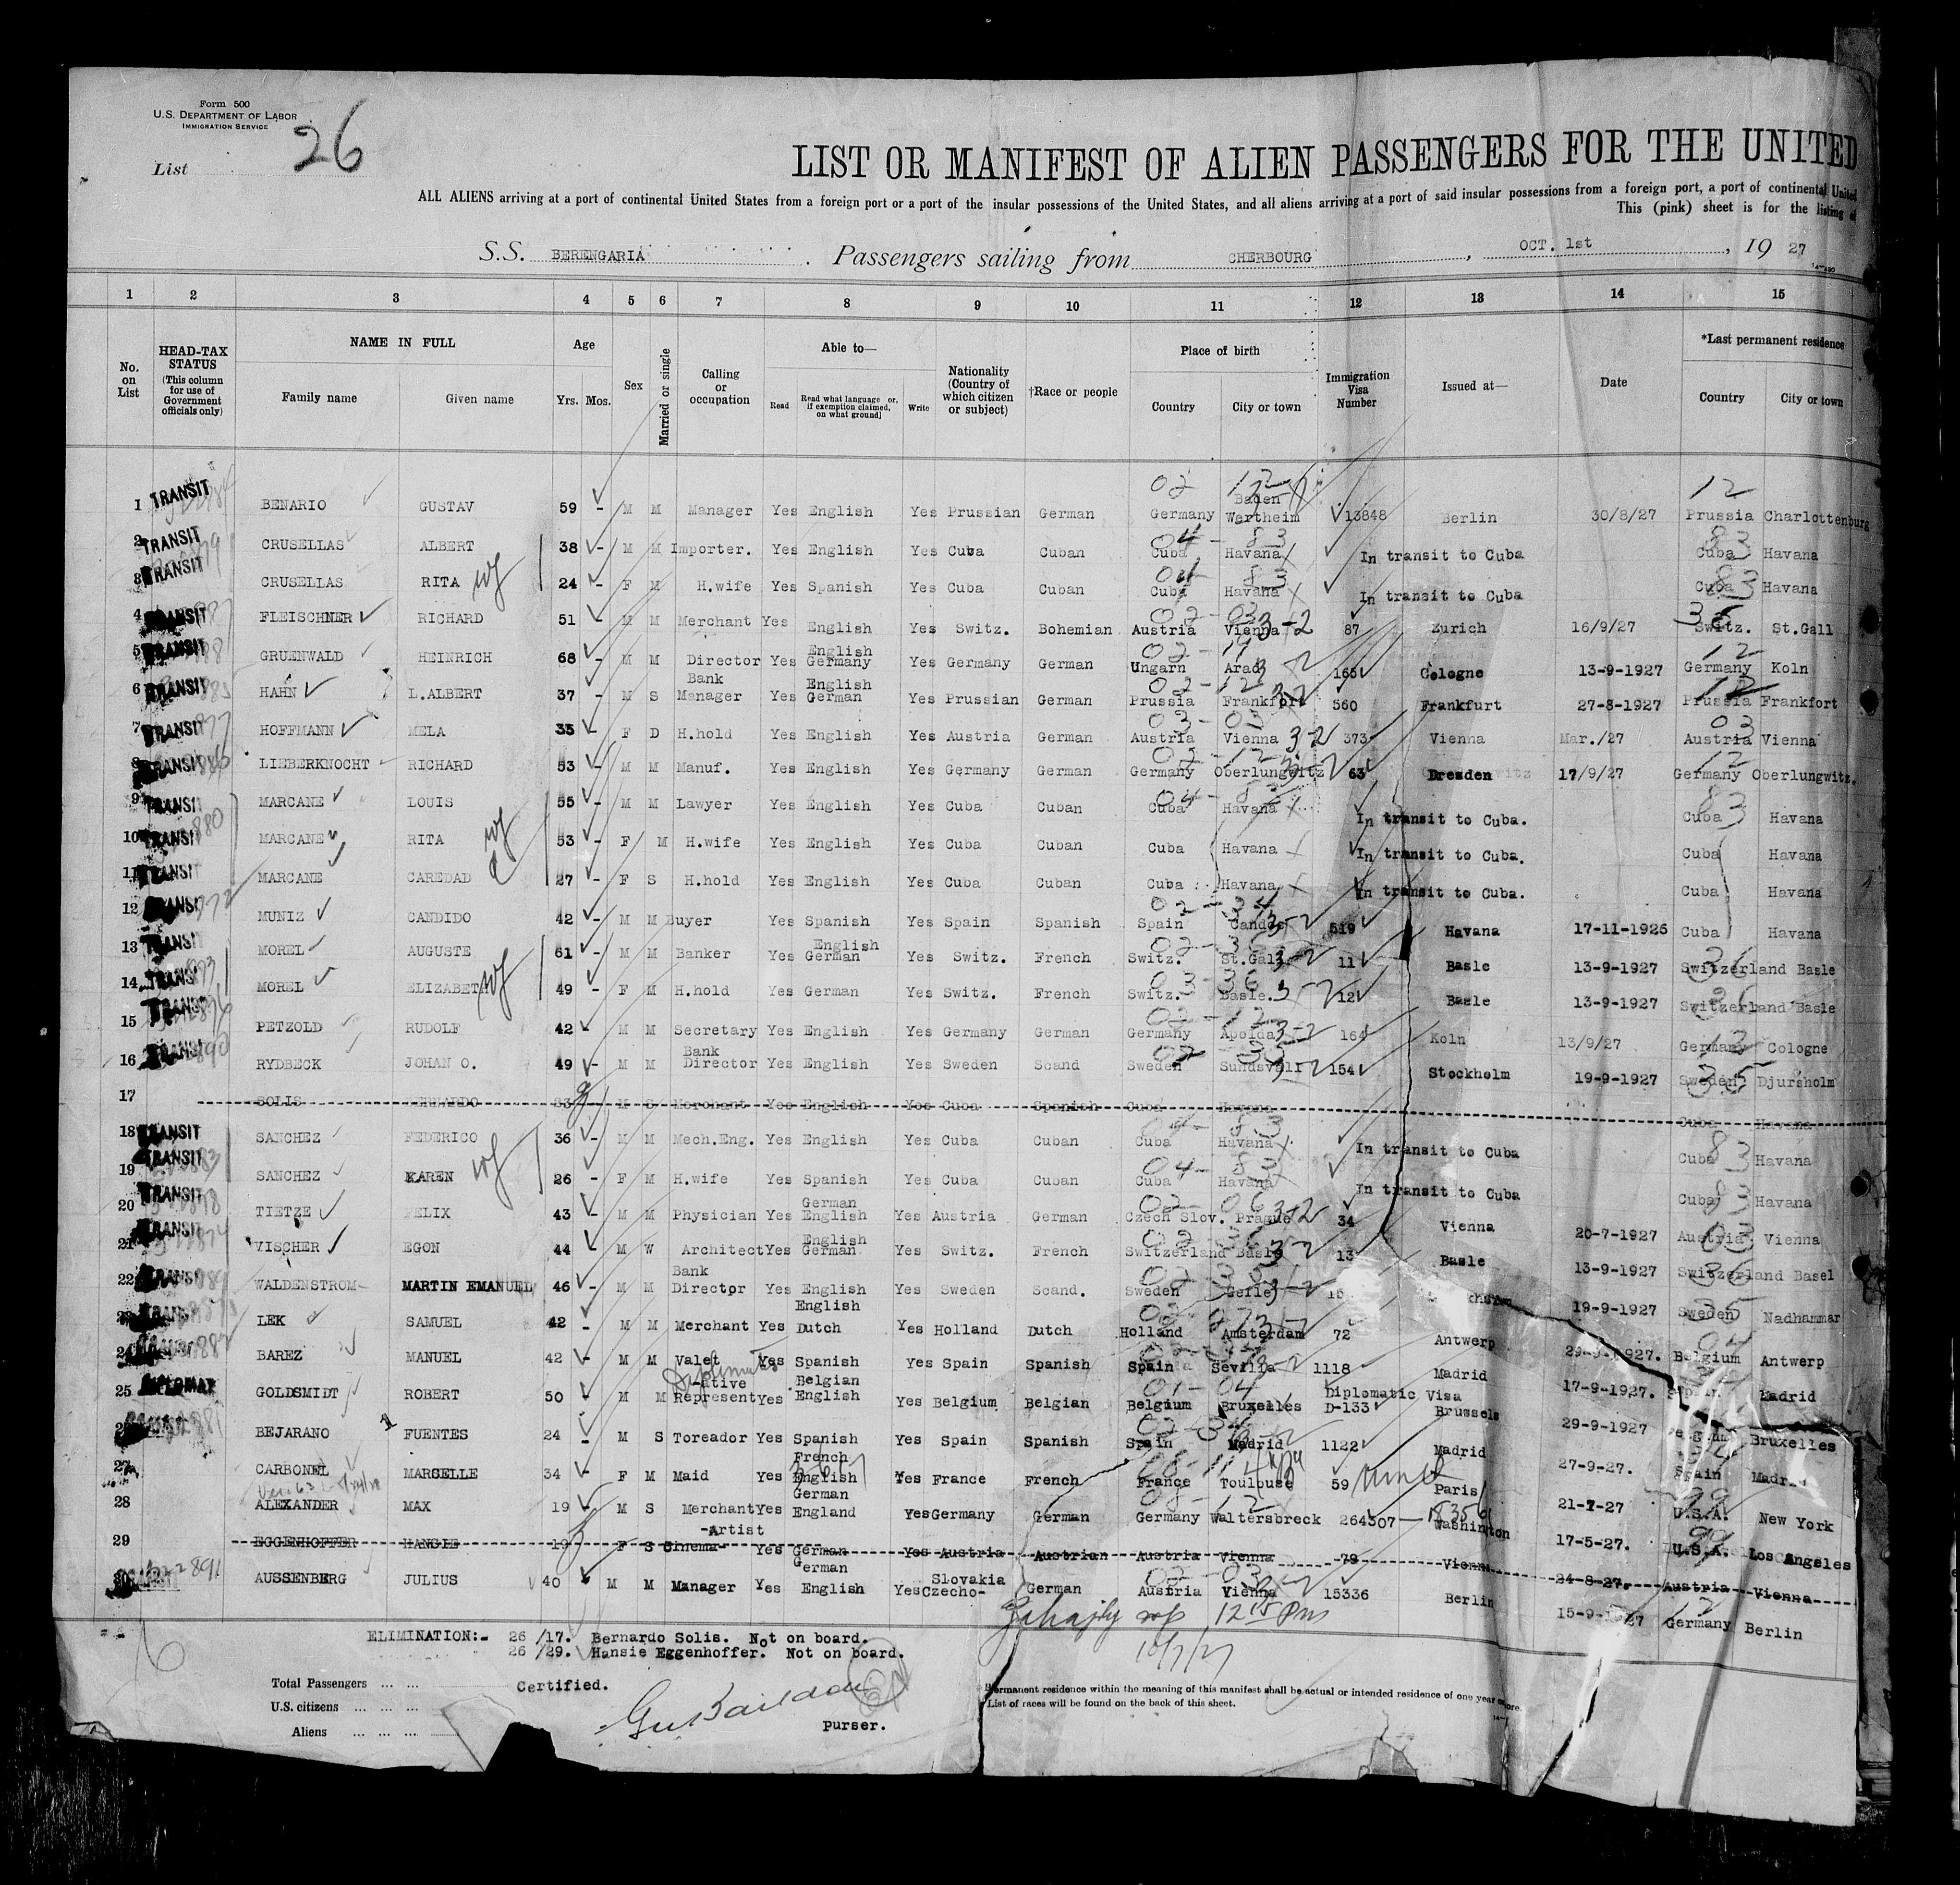 Form 500
U.S. DEPARTMENT OF LABOR
IMMIGRATION SERVICE
List 26
LIST OR MANIFEST OF ALIEN PASSENGERS FOR THE UNITED
ALL ALIENS arriving at a port of continental United States from a foreign port or a port of the insular possessions of the United States, and all aliens arriving at a port of said insular possessions from a foreign port, a port of continental United
This (pink) sheet is for the listing of
S.S. BERENGARIA Passengers sailing from CHERBOURG, OCT. 1st, 19 27
1 2 3 4 5 6 7 8 9 10 11 12 13 14 15
No. on List
HEAD-TAX STATUS (This column for use of Government officials only)
NAME IN FULL
Family name Given name
Age
Yrs. Mos.
Sex
Married or single
Calling or occupation
Able to—
Read Read what language or, if exemption claimed, on what ground] Write
Nationality (Country of which citizen or subject)
†Race or people
Place of birth
Country City or town
Immigration Visa Number
Issued at—
Date
*Last permanent residence
Country City or town
1 TRANSIT BENARIO GUSTAV 59 - M M Manager Yes English Yes Prussian German Germany Baden Wertheim 13848 Berlin 30/8/27 Prussia Charlottenburg
2 TRANSIT CRUSELLAS ALBERT 38 - M M Importer. Yes English Yes Cuba Cuban Cuba Havana In transit to Cuba Cuba Havana
3 TRANSIT CRUSELLAS RITA wf 24 - F M H.wife Yes Spanish Yes Cuba Cuban Cuba Havana In transit to Cuba Cuba Havana
4 TRANSIT FLEISCHNER RICHARD 51 M M Merchant Yes English Yes Switz. Bohemian Austria Vienna 87 Zurich 16/9/27 Switz. St.Gall
5 TRANSIT GRUENWALD HEINRICH 68 - M M Director Yes English Germany Yes Germany German Ungarn Arad 165 Cologne 13-9-1927 Germany Koln
6 TRANSIT HAHN L.ALBERT 37 - M S Bank Manager Yes English German Yes Prussian German Prussia Frankfort 560 Frankfurt 27-8-1927 Prussia Frankfort
7 TRANSIT HOFFMANN MELA 35 - F D H.hold Yes English Yes Austria German Austria Vienna 373 Vienna Mar./27 Austria Vienna
8 TRANSIT LIEBERKNOCHT RICHARD 53 - M M Manuf. Yes English Yes Germany German Germany Oberlungwitz 63 Dresden 17/9/27 Germany Oberlungwitz.
9 TRANSIT MARCANE LOUIS 55 - M M Lawyer Yes English Yes Cuba Cuban Cuba Havana In transit to Cuba. Cuba Havana
10 TRANSIT MARCANE RITA wf 53 - F M H.wife Yes English Yes Cuba Cuban Cuba Havana In transit to Cuba. Cuba Havana
11 TRANSIT MARCANE CAREDAD 27 - F S H.hold Yes English Yes Cuba Cuban Cuba Havana In transit to Cuba. Cuba Havana
12 TRANSIT MUNIZ CANDIDO 42 - M M Buyer Yes Spanish Yes Spain Spanish Spain 519 Havana 17-11-1926 Cuba Havana
13 TRANSIT MOREL AUGUSTE 61 - M M Banker Yes English German Yes Switz. French Switz. St.Gall 11 Basle 13-9-1927 Switzerland Basle
14 TRANSIT MOREL ELIZABETH wf 49 - F M H.hold Yes German Yes Switz. French Switz. Basle. 12 Basle 13-9-1927 Switzerland Basle
15 TRANSIT PETZOLD RUDOLF 42 - M M Secretary Yes English Yes Germany German Germany Apolda 164 Koln 13/9/27 Germany Cologne
16 TRANSIT RYDBECK JOHAN O. 49 - M M Bank Director Yes English Yes Sweden Scand Sweden Sundsvall 154 Stockholm 19-9-1927 Sweden Djursholm
17 SOLIS BERNARDO 33 M S Merchant Yes English Yes Cuba Spanish Cuba Havana Cuba Havana
18 TRANSIT SANCHEZ FEDERICO 36 - M M Mech.Eng. Yes English Yes Cuba Cuban Cuba Havana In transit to Cuba Cuba Havana
19 TRANSIT SANCHEZ KAREN wf 26 - F M H.wife Yes Spanish Yes Cuba Cuban Cuba Havana In transit to Cuba Cuba Havana
20 TRANSIT TIETZE FELIX 43 - M M Physician Yes German English Yes Austria German Czech Slov. Prague 34 Vienna 20-7-1927 Austria Vienna
21 TRANSIT VISCHER EGON 44 - M W Architect Yes English German Yes Switz. French Switzerland Basle 13 Basle 13-9-1927 Switzerland Basel
22 TRANSIT WALDENSTROM MARTIN EMANUEL 46 - M M Bank Director Yes English Yes Sweden Scand. Sweden Gefle 19-9-1927 Sweden Nadhammar
23 LEK SAMUEL 42 - M M Merchant Yes English Dutch Yes Holland Dutch Holland Amsterdam 72 Antwerp 29-9-1927. Belgium Antwerp
24 BAREZ MANUEL 42 - M M Valet Yes Spanish Yes Spain Spanish Spain Sevilla 1118 Madrid 17-9-1927. Spain Madrid
25 DIPLOMAT GOLDSMIDT ROBERT 50 - M M Diplomatic Representative Yes Belgian English Yes Belgium Belgian Belgium Bruxelles Diplomatic Visa D-133 Brussels 29-9-1927 Belgium Bruxelles
26 BEJARANO FUENTES 24 - M S Toreador Yes Spanish Yes Spain Spanish Spain Madrid 1122 Madrid 27-9-27. Spain Madrid
27 CARBONEL MARSELLE 34 - F M Maid Yes French English Yes France French France Toulouse 59 Paris 21-7-27 U.S.A. New York
28 ALEXANDER MAX 19 - M S Merchant Yes German England Yes Germany German Germany Waltersbreck 264307 Washington 17-5-27. U.S.A. Los Angeles
29 EGGENHOFFER HANSIE 19 F S Cinema-Artist Yes German Yes Austria Austrian Austria Vienna 79 Vienna 24-8-27. Austria Vienna
30 AUSSENBERG JULIUS 40 M M Manager Yes German English Yes Czecho-Slovakia German Austria Vienna 15336 Berlin 15-9-1927 Germany Berlin
12 15 Pm
10/7/27
ELIMINATION:- 26 /17. Bernardo Solis. Not on board.
26 /29. Hansie Eggenhoffer. Not on board.
Total Passengers
Certified.
U.S. citizens
Aliens
purser.
Permanent residence within the meaning of this manifest shall be actual or intended residence of one year or more.
List of races will be found on the back of this sheet.